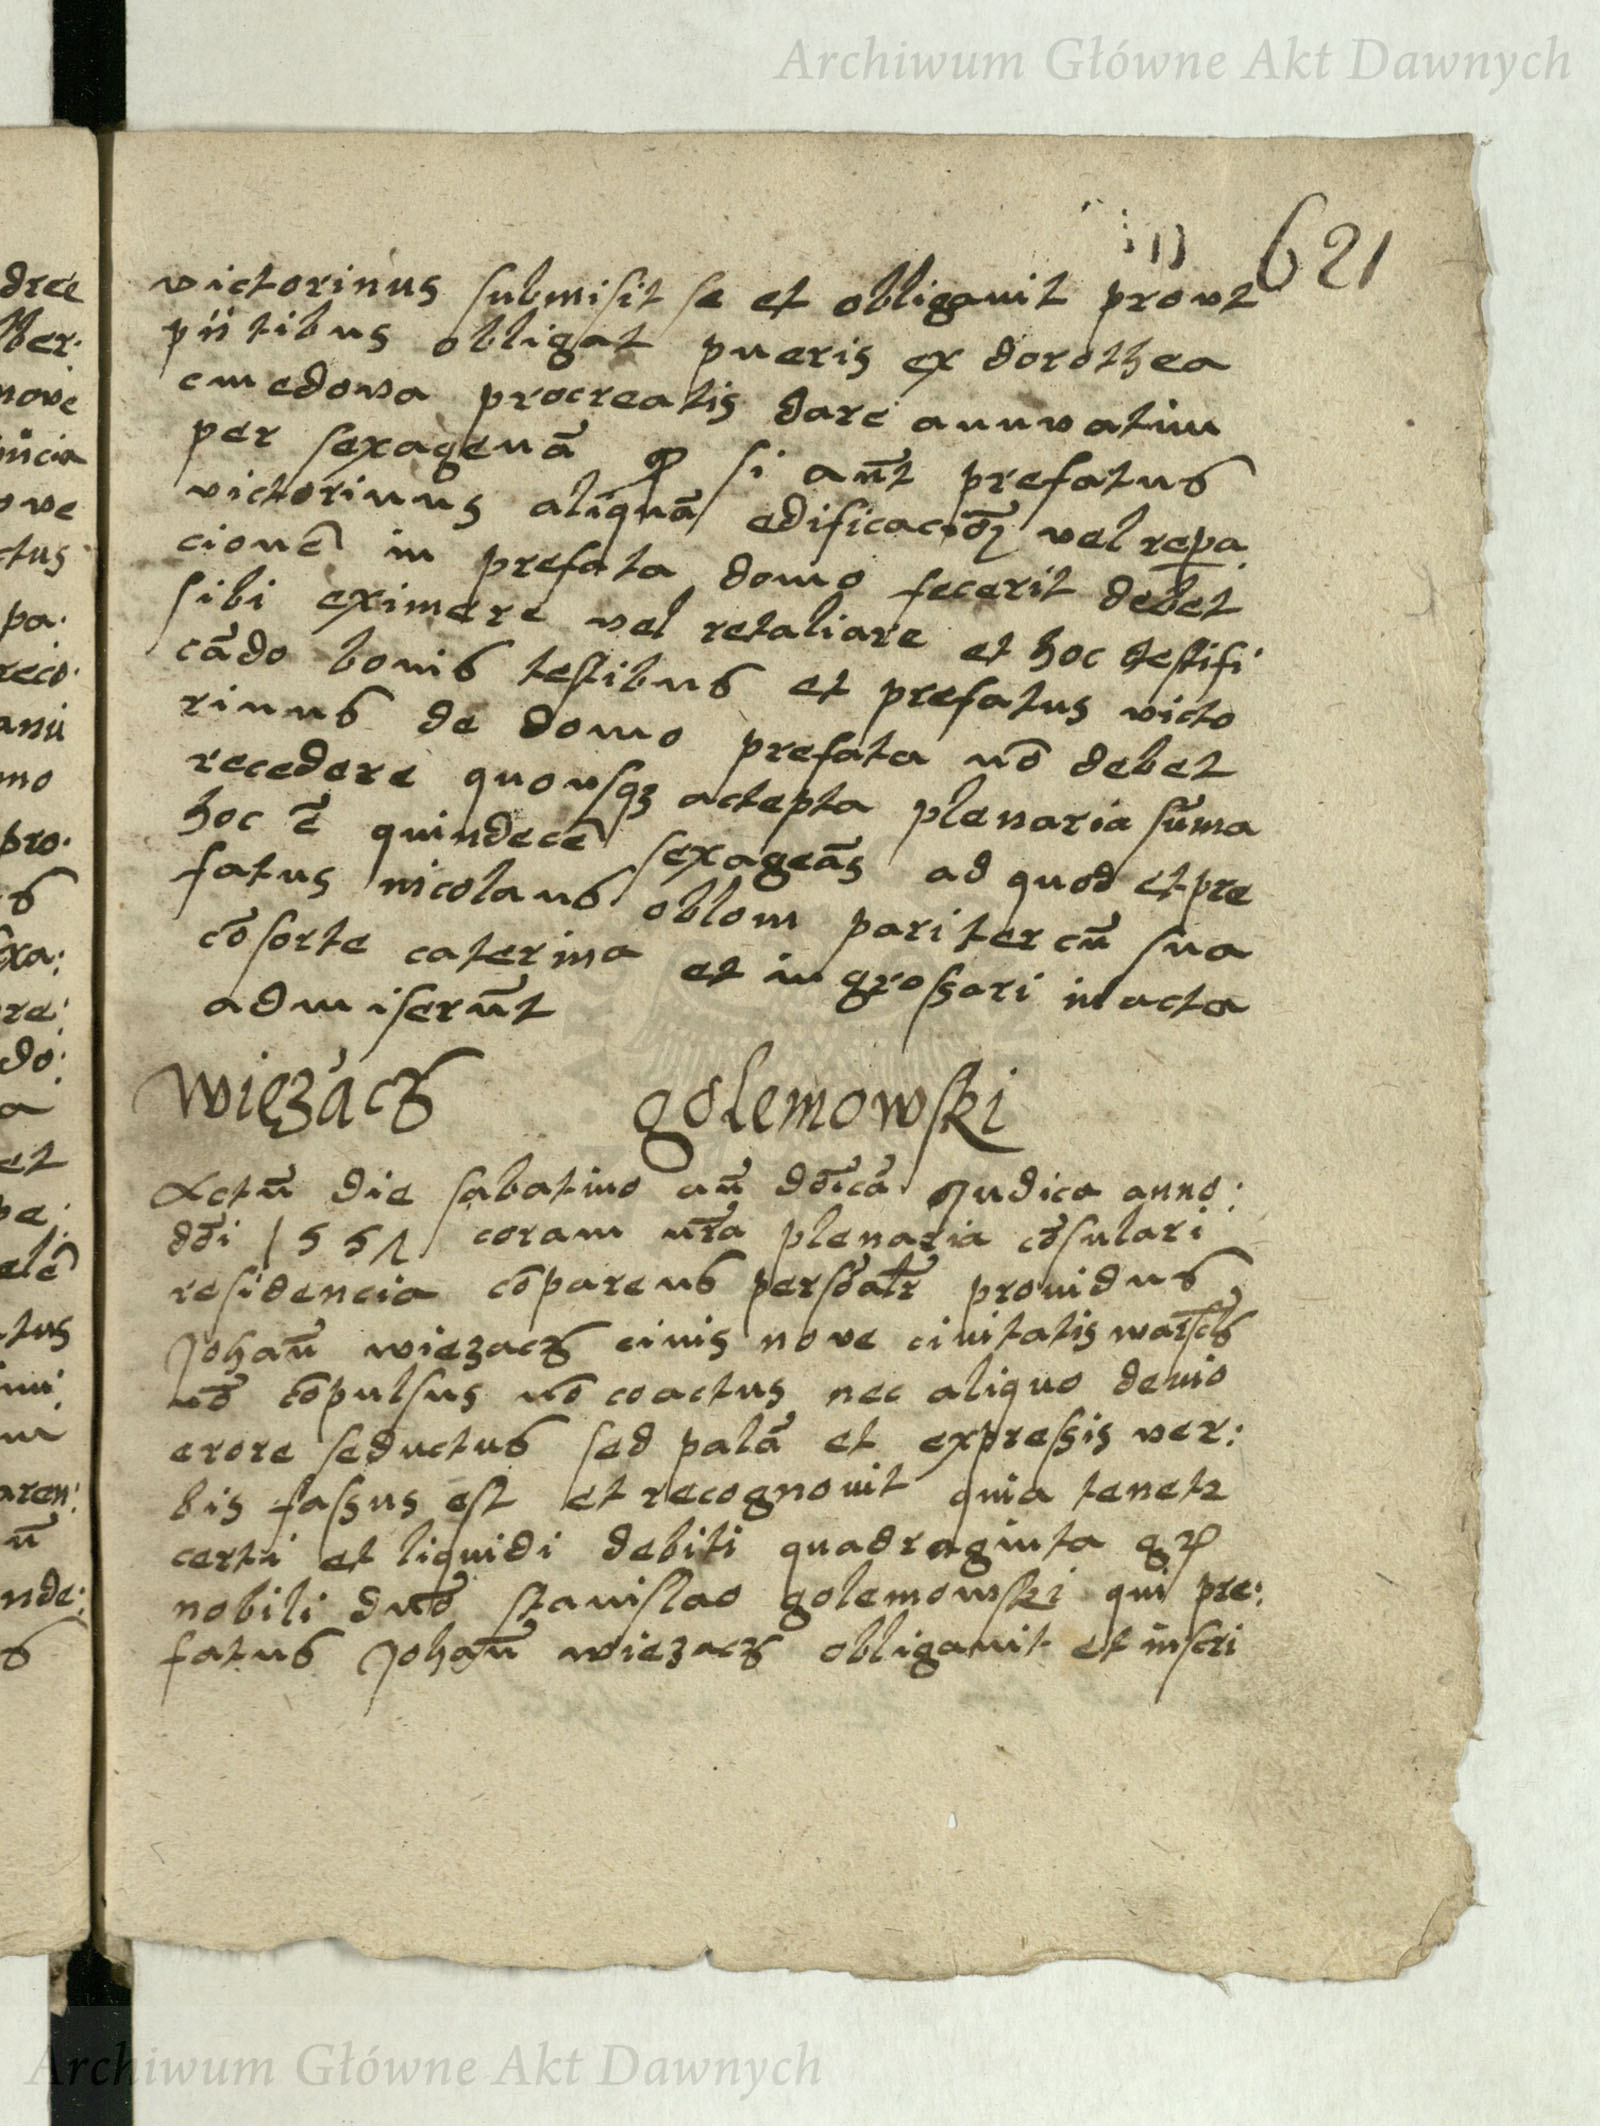 Archiwum Główne Akt Dawnych
621
victorinus submisit se et obligauit prout
pñtibus obligat pueris ex dorothea
cmedowa procreatis dare annuatim
per sexagenā si aūt prefatus
victorinus aliquā edificacōȝ vel repa
cionē in prefata domo fecerit debet
sibi eximere vel retaliare et hoc testifi
cādo bonis testibus et prefatus victo
rinus de domo prefata nō debet
recedere quousqȝ actepta plenaria sūma
hoc ē quindecē sexageās ad quod et pre
fatus nicolaus oblom pariter cū sua
cōsorte caterina et in grossari in acta
admiserūt
Więzącz golemowski
Actū die sabatino añ dōicā Judica anno:
dōi 1551 coram nr̄a plenaria cōsulari
residencia cōparens persōalr̄ prouidus
Johañ wiezacz ciuis noue ciuitatis
nō cōpulsus nō coactus nec aliquo deuio
erore seductus sed palā et expressis ver:
bis fassus est et recognouit quia tenetr
certi et liquidi debiti quadraginta gr
nobili dnō stanislao golemowski qui pre:
fatus Johañ wiezacz obligauit et inscri
dree
noue
ctus
pa.
reco.
mo
pro.
re:
do:
a
et
elē
tus
m
aren:
ū
nde:
Archiwum Główne Akt Dawnych